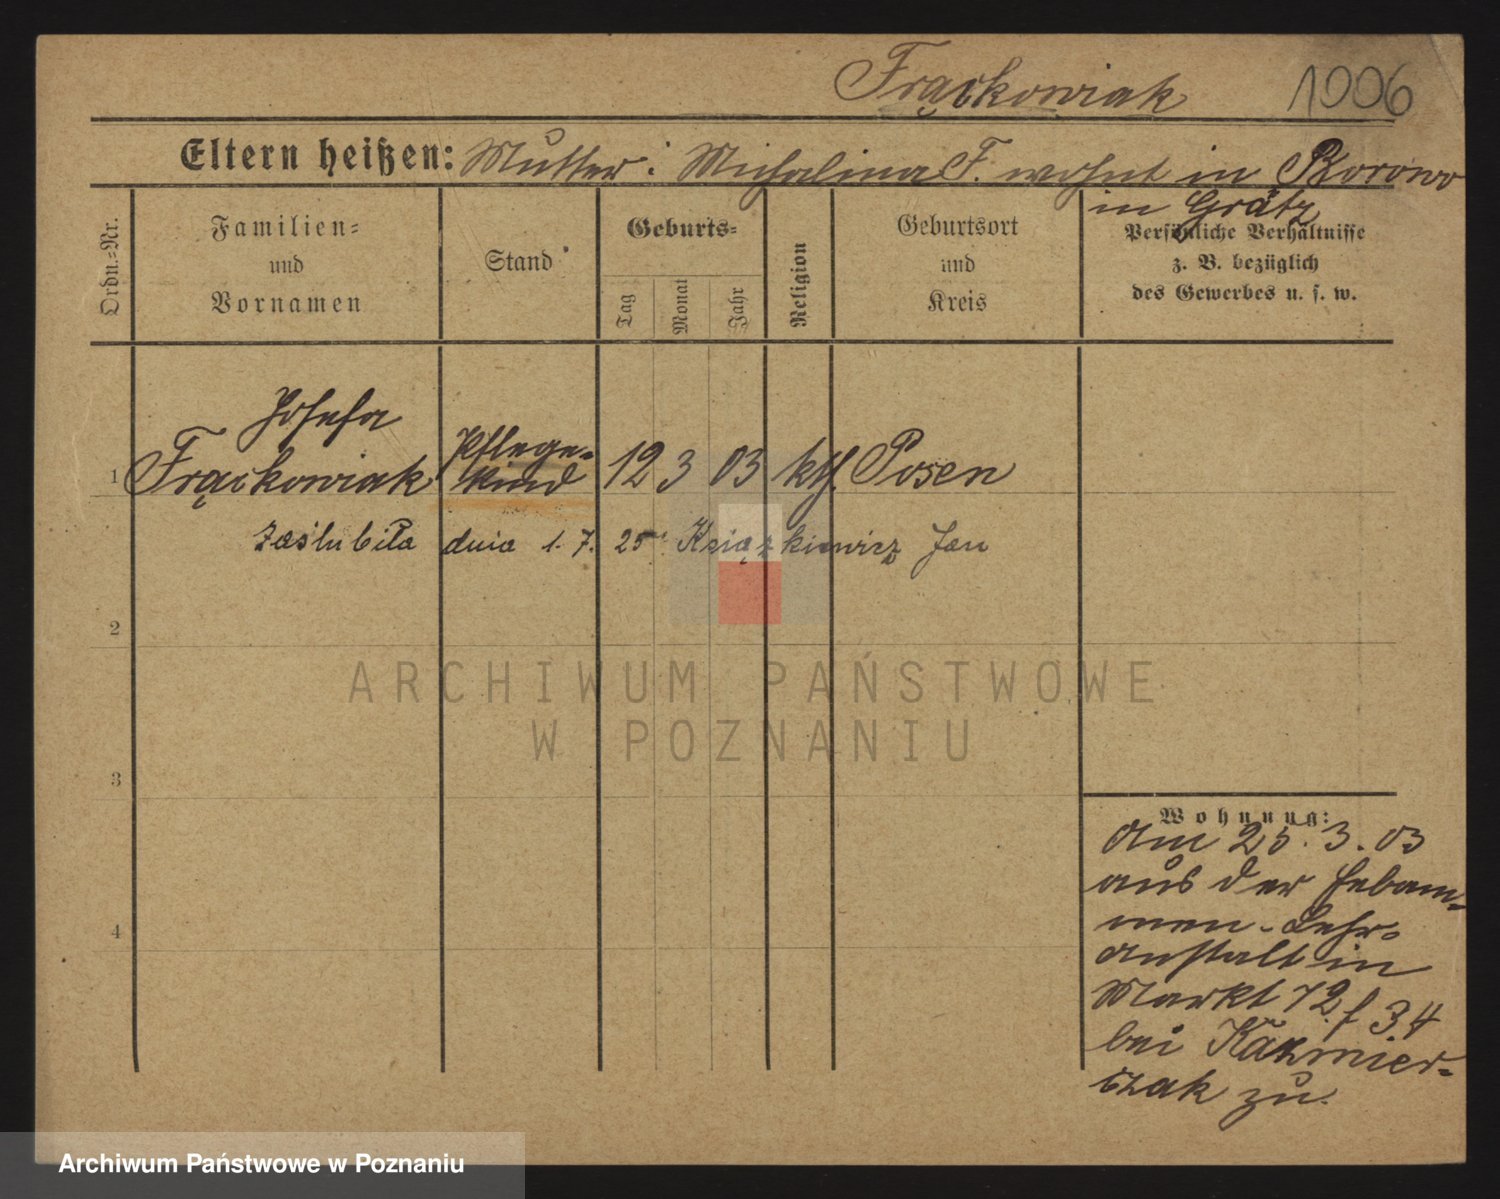 Frąckowiak 1006
Eltern heißen: Mutter: Michalina F. wohnt in Borowo
in Grätz
Ordn.-Nr.
Familien-
und
Vornamen
Stand
Geburts-
Tag
Monat
Jahr
Religion
Geburtsort
und
Kreis
Persönliche Verhältnisse
z. B. bezüglich
des Gewerbes u. s. w.
Josefa
1 Frąckowiak Pflege-
kind 12 3 03 kth. Posen
zaślubiła dnia 1. 7. 25 Książkiewicz Jan
2
3
4
ARCHIWUM PAŃSTWOWE
W POZNANIU
Wohnung:
Am 25. 3. 03
aus der Hebam-
men-Lehr-
anstalt in
Markt 72 f 3.4
bei Kaźmier-
czak zu.
Archiwum Państwowe w Poznaniu